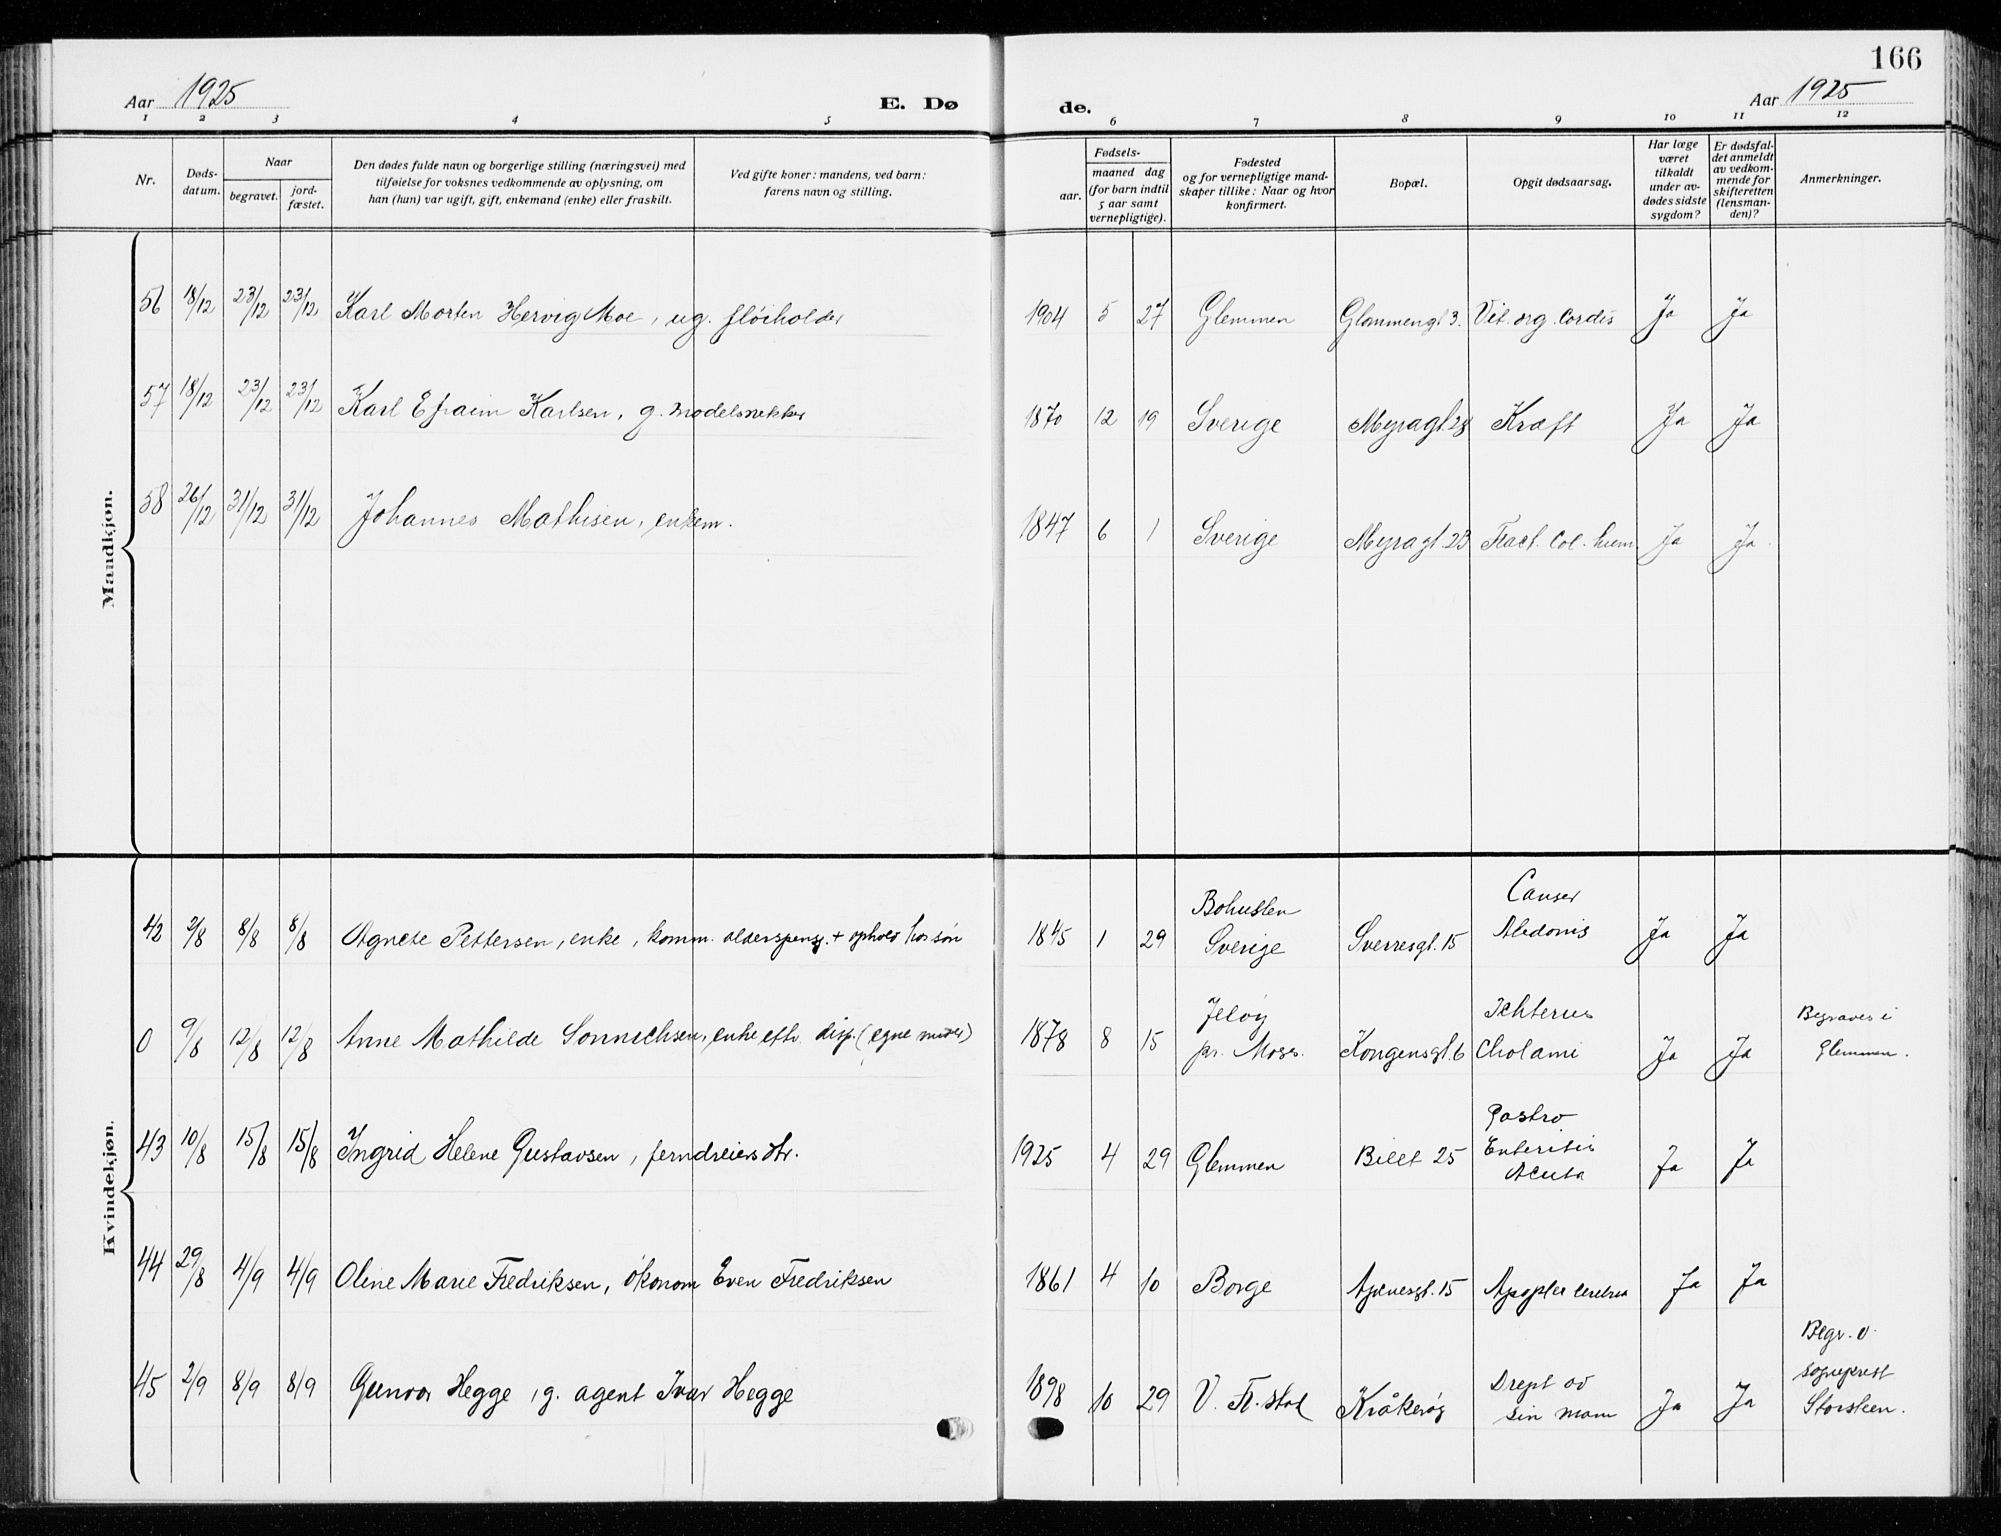 166
Aar 1925
E. Dø
de.
Aar 1925
1 2 3 4 5 6 7 8 9 10 11 12
Nr.
Døds-
datum.
Naar
begravet.
jord-
fæstet.
Den dødes fulde navn og borgerlige stilling (næringsvei) med
tilføielse for voksnes vedkommende av oplysning, om
han (hun) var ugift, gift, enkemand (enke) eller fraskilt.
Ved gifte koner: mandens, ved barn:
farens navn og stilling.
Fødsels-
aar.
maaned dag
(for barn indtil
5 aar samt
vernepligtige).
Fødested
og for vernepligtige mand-
skaper tillike: Naar og hvor
konfirmert.
Bopæl.
Opgit dødsaarsag.
Har læge
været
tilkaldt
under av-
dødes sidste
sygdom?
Er dødsfal-
det anmeldt
av vedkom-
mende for
skifteretten
(lensman-
den)?
Anmerkninger.
Mandkjøn.
56 18/12 23/12 23/12 Karl Morten Hervig Moe, ug. fløiholder 1904 5 27 Glemmen Glommengt 3. Vit. org. Cordis Ja Ja
57 18/12 23/12 23/12 Karl Efraim Karlsen, g. modelsnekker 1870 12 19 Sverige Myragt. 28 Kræft Ja Ja
58 26/12 31/12 31/12 Johannes Mathisen, enkem. 1847 6 1 Sverige Myragt 23 Fract. Col. hum Ja Ja
Kvindekjøn.
42 2/8 8/8 8/8 Agnete Pettersen, enke, komm. alderspensj. + ophold hos søn 1845 1 29 Bohuslen
Sverige Sverresgt. 15 Canser
Abdonis Ja Ja
0 9/8 12/8 12/8 Anne Mathilde Sonnichsen, enke eftr. disp. (egne midler) 1878 8 15 Jeløy
pr. Moss. Kongensgt. 6 Ichterus
Cholami Ja Ja Begraves i
Glemmen.
43 10/8 15/8 15/8 Ingrid Helene Gustavsen, jerndreiers dtr. 1925 4 29 Glemmen Bilet 25 Gastro
Enteritis
Acuta Ja Ja
44 29/8 4/9 4/9 Oline Marie Fredriksen, økonom Even Fredriksen 1861 4 10 Borge Agnesgt. 15 Apoplex cerebri Ja Ja
45 2/9 8/9 8/9 Gunvor Hegge, g. agent Ivar Hegge 1898 10 29 V. Fr.stad Kråkerøy Drept av
sin mann Ja Ja Begr. v.
sogneprest
Storsteen.